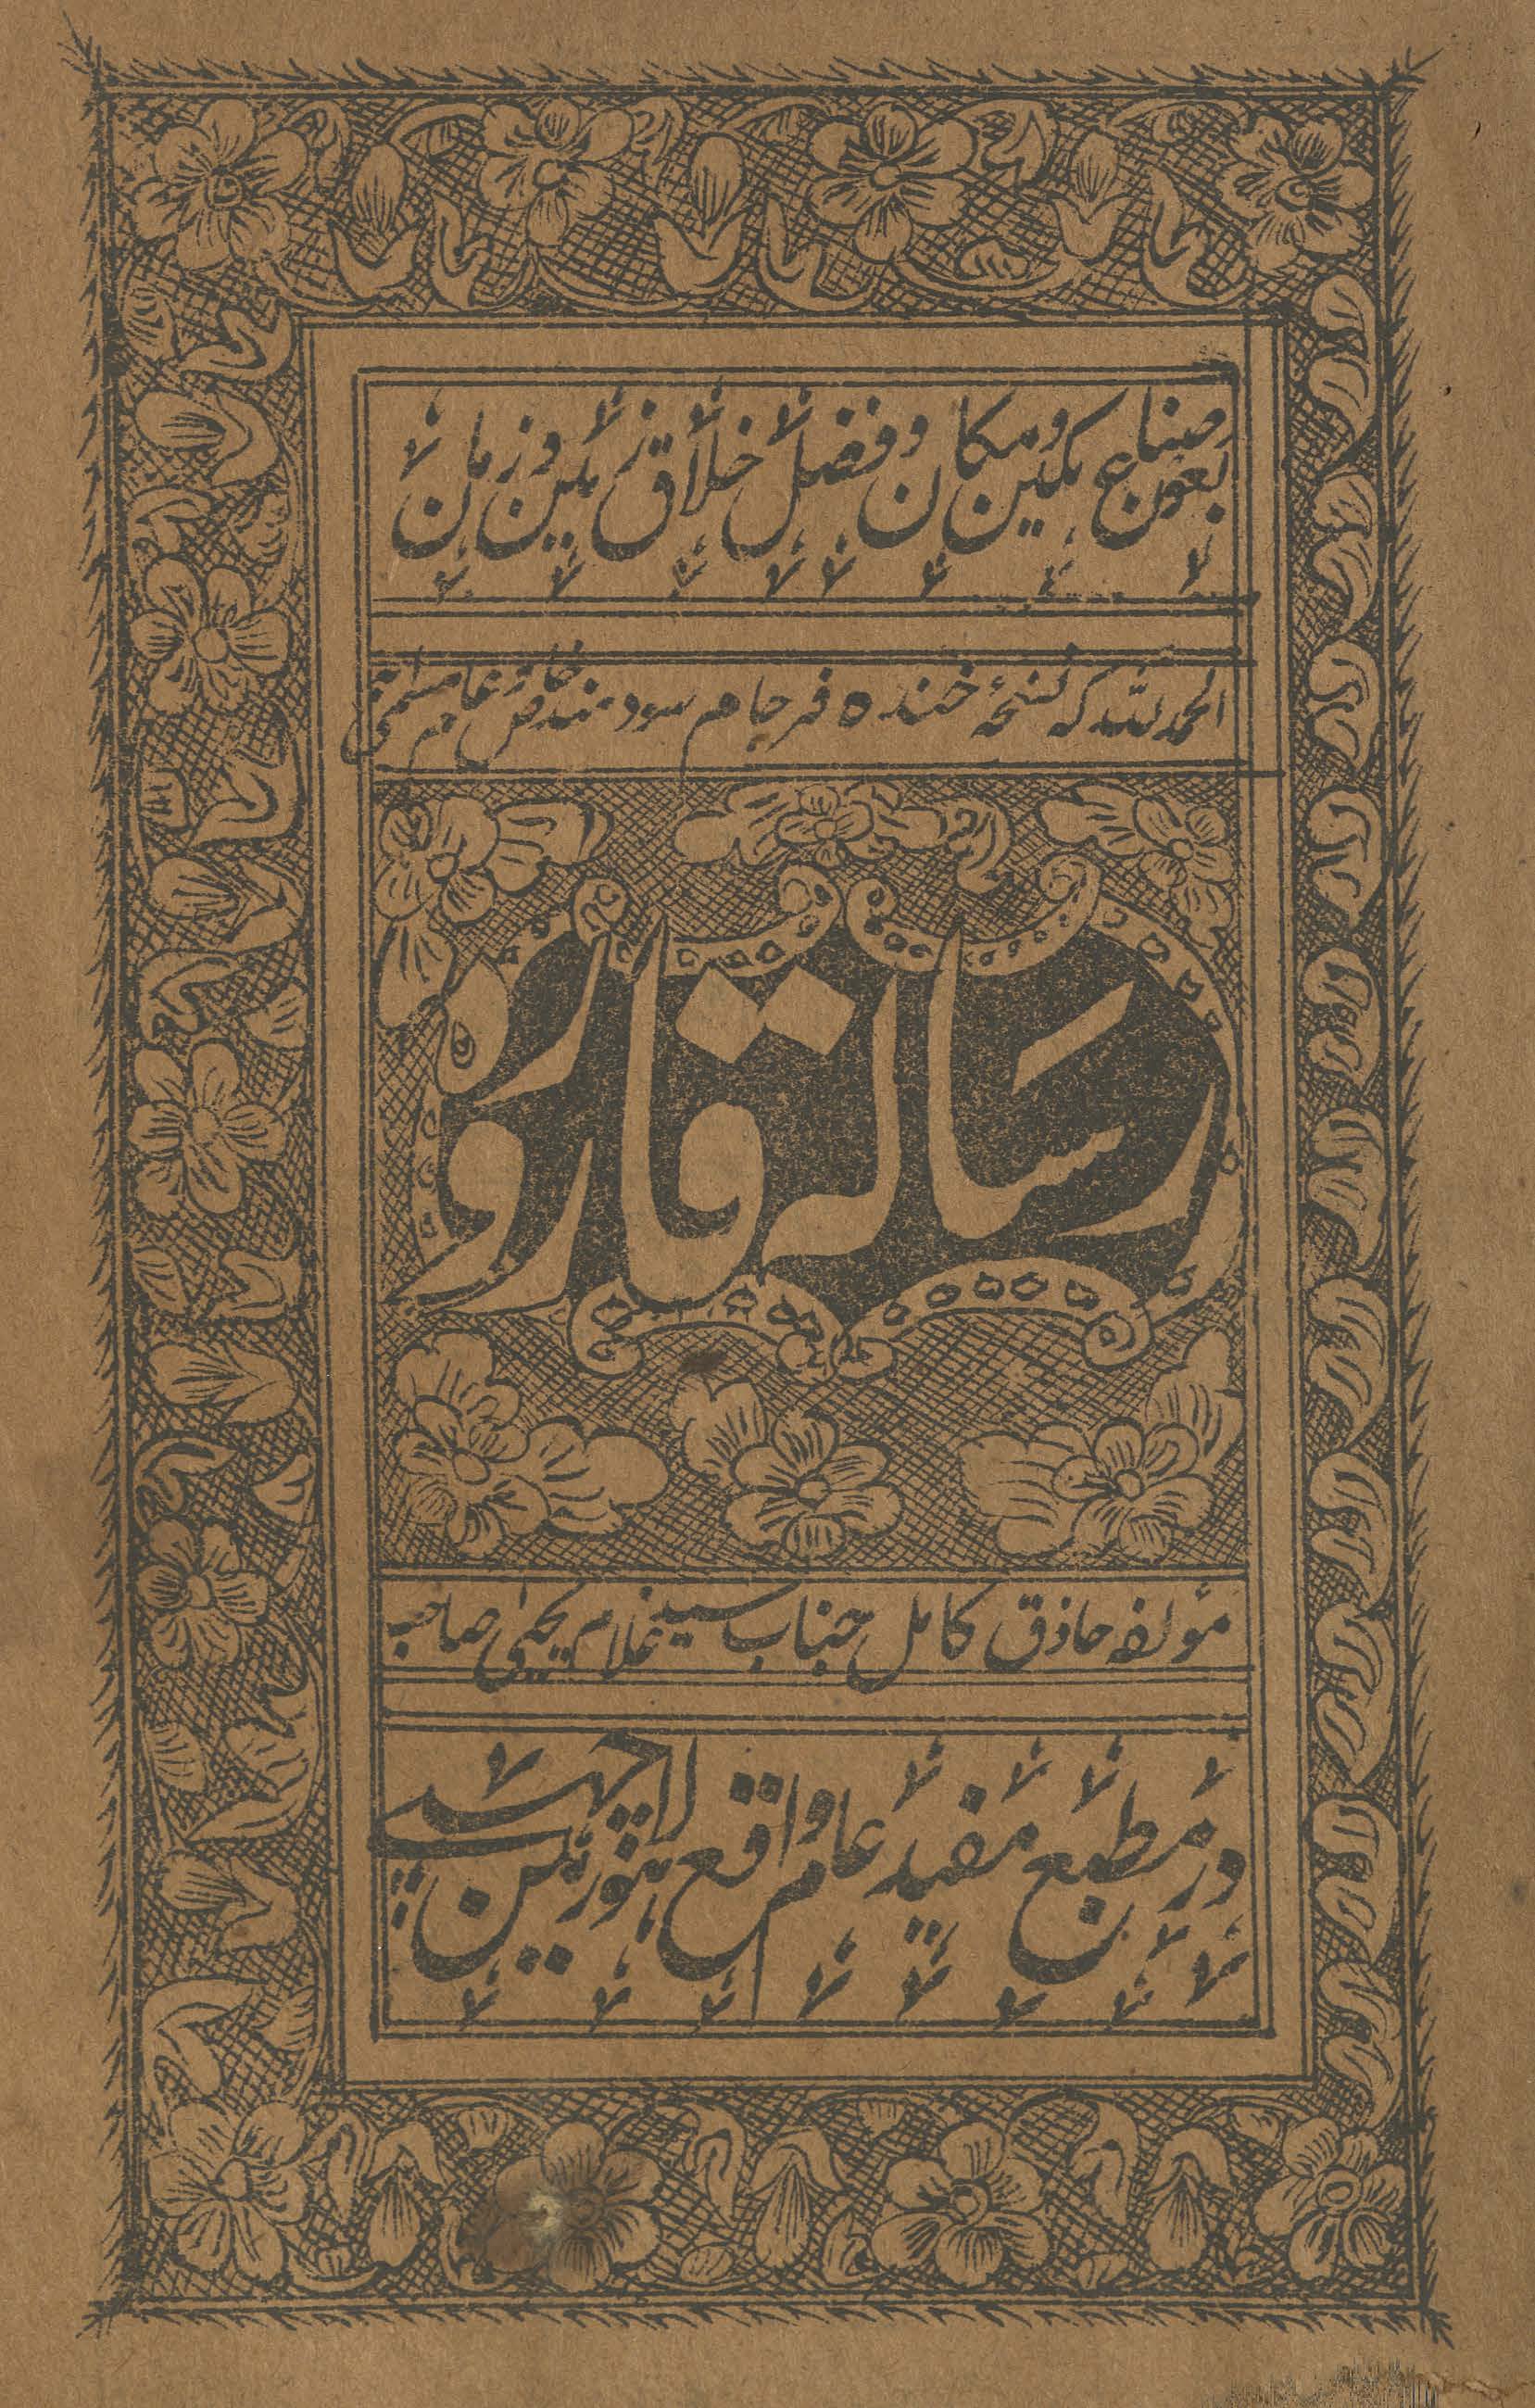 بعون صناع مکین و مکان و فضل خلاق زمین و زمان
الحمد للہ کہ نسخۂ خندہ فرجام سودمند خاص و عام مسمیٰ بہ
رسالہ قارورہ
مؤلفہ حاذق کامل جناب سید غلام یحییٰ صاحب
در مطبع مفید عام واقع لاہور